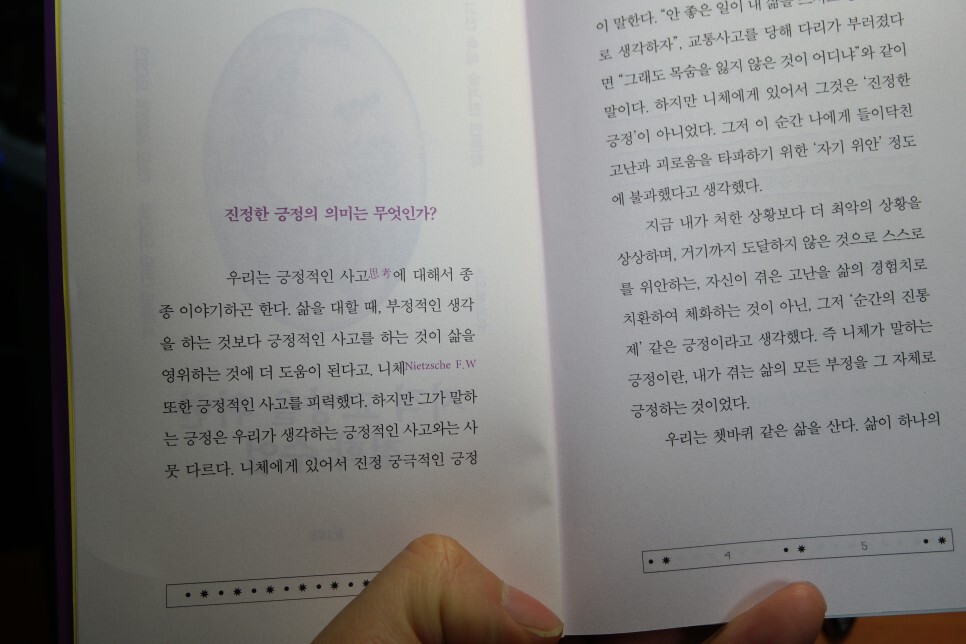 진정한 긍정의 의미는 무엇인가?
우리는 긍정적인 사고思考에 대해서 종
종 이야기하곤 한다. 삶을 대할 때, 부정적인 생각
을 하는 것보다 긍정적인 사고를 하는 것이 삶을
영위하는 것에 더 도움이 된다고. 니체Nietzsche F.W
또한 긍정적인 사고를 피력했다. 하지만 그가 말하
는 긍정은 우리가 생각하는 긍정적인 사고와는 사
뭇 다르다. 니체에게 있어서 진정 궁극적인 긍정
이 말한다. “안 좋은 일이 내 삶을
로 생각하자”, 교통사고를 당해 다리가 부러졌다
면 “그래도 목숨을 잃지 않은 것이 어디냐”와 같이
말이다. 하지만 니체에게 있어서 그것은 ‘진정한
긍정’이 아니었다. 그저 이 순간 나에게 들이닥친
고난과 괴로움을 타파하기 위한 ‘자기 위안’ 정도
에 불과했다고 생각했다.
지금 내가 처한 상황보다 더 최악의 상황을
상상하며, 거기까지 도달하지 않은 것으로 스스로
를 위안하는, 자신이 겪은 고난을 삶의 경험치로
치환하여 체화하는 것이 아닌, 그저 ‘순간의 진통
제’ 같은 긍정이라고 생각했다. 즉 니체가 말하는
긍정이란, 내가 겪는 삶의 모든 부정을 그 자체로
긍정하는 것이었다.
우리는 쳇바퀴 같은 삶을 산다. 삶이 하나의
4 5